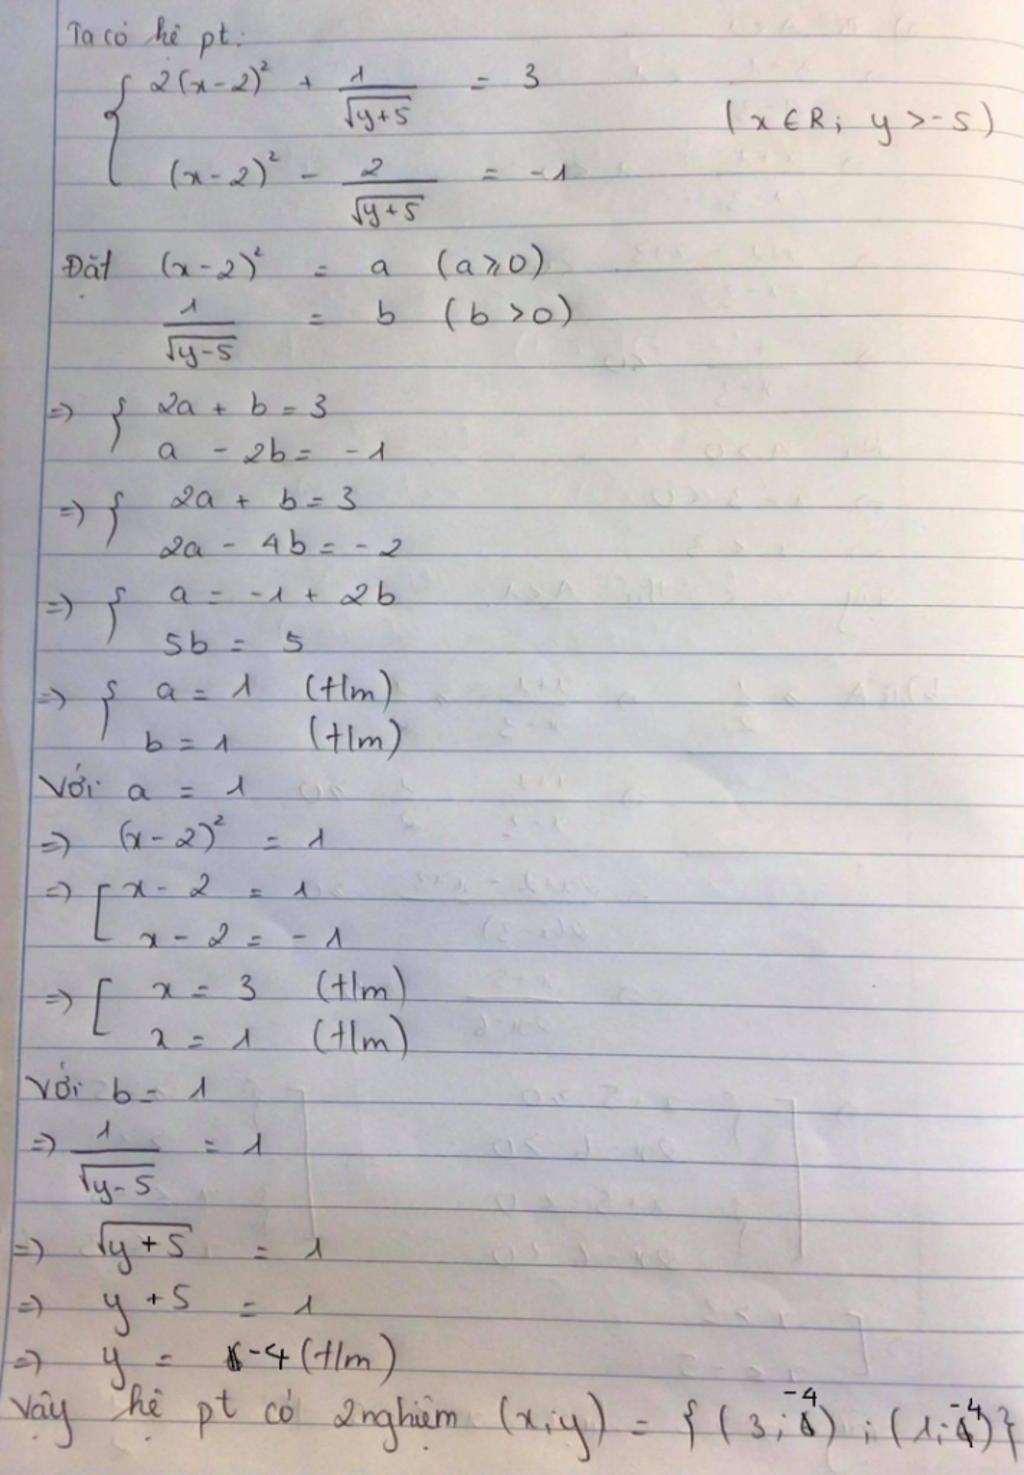 Ta có hệ pt:
2(x-2)² + 1/√(y+5) = 3
(x ∈ R; y > -5)
(x-2)² - 2/√(y+5) = -1
Đặt (x-2)² = a (a ⩾ 0)
1/√(y-5) = b (b > 0)
=> { 2a + b = 3
a - 2b = -1
=> { 2a + b = 3
2a - 4b = -2
=> { a = -1 + 2b
5b = 5
=> { a = 1 (t/m)
b = 1 (t/m)
Với a = 1
=> (x-2)² = 1
=> [ x - 2 = 1
x - 2 = -1
=> [ x = 3 (t/m)
x = 1 (t/m)
Với b = 1
=> 1/√(y-5) = 1
=> √(y+5) = 1
=> y + 5 = 1
=> y = -4 (t/m)
Vậy hệ pt có 2 nghiệm (x;y) = {(3;-4) ; (1;-4)}